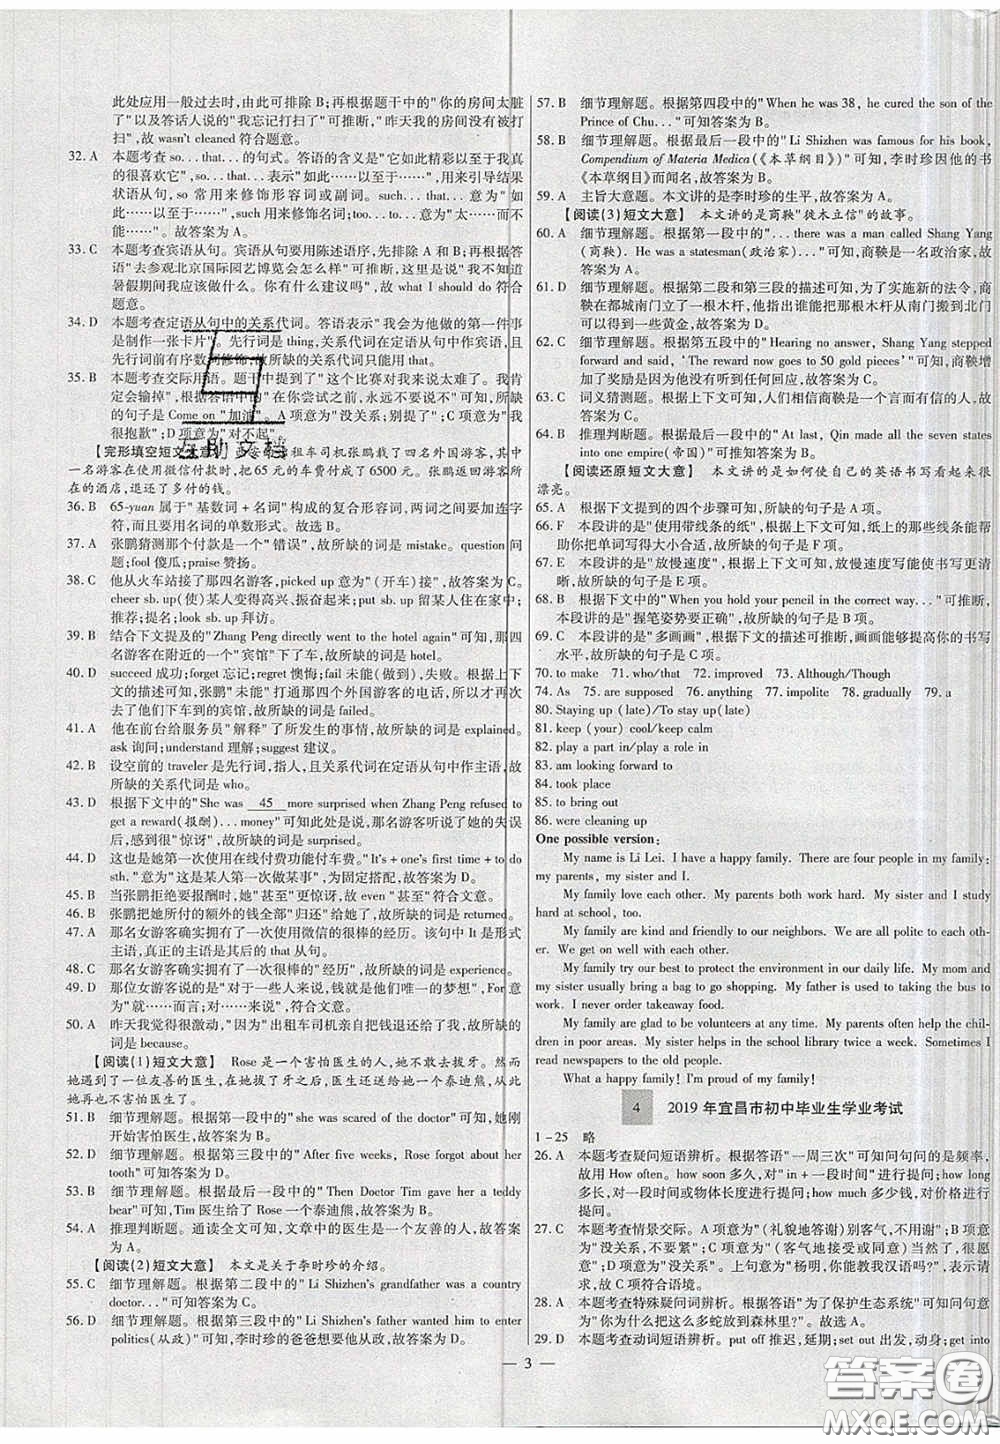 此处应用一般过去时,由此可排除 B;再根据题干中的"你的房间太脏
了"以及答话人说的"我忘记打扫了"可推断,"昨天我的房间没有被打
扫",故 wasn't cleaned 符合题意。
32. A 本题考查 so...that...的句式。答语的含义是"它如此精彩以至于我
真的很喜欢它",so...that...表示"如此……以至于……",用来引导结果
状语从句,so 常用来修饰形容词或副词。such...that...意为"如此
……以至于……",such 用来修饰名词;too...to...意为"太……而不
能……"。故答案为 A。
33. C 本题考查宾语从句。宾语从句要用陈述语序,先排除 A 和 B;再根据答
语"去参观北京国际园艺博览会怎么样"可推断,上句句意为"我不知道
暑假期间我应该做什么。你有什么建议吗",故 what I should do 符合
题意。
34. D 本题考查定语从句中的关系代词。答语表示"我会为他做的第一件事
是制作一张卡片"。先行词是 thing,关系代词在定语从句中作宾语,且
先行词前有序数词修饰,故所缺的关系代词只能用 that。
35. B 本题考查交际用语。题干中提到了"这个比赛对我来说太难了。我肯
定会输掉",根据答语中的"在你尝试之前,永远不要说不"可知,所缺
的句子是 Come on"加油"。A 项意为"没关系;别提了";C 项意为"我
很抱歉";D 项意为"对不起"。
【完形填空短文大意】 西安的出租车司机张鹏载了四名外国游客,其中
一名游客在使用微信付款时,把 65 元的车费付成了 6500 元。张鹏返回游客所
在的酒店,退还了多付的钱。
36. B 65-yuan 属于"基数词 + 名词"构成的复合形容词,两词之间要加连字
符,而且要用名词的单数形式。故选 B。
37. A 张鹏猜测那个付款是一个"错误",故所缺的词是 mistake。question 问
题;fool 傻瓜;praise 赞扬。
38. C 他从火车站接了那四名游客,picked up 意为"(开车)接",故答案为 C。
cheer sb. up(使)某人变得高兴、振奋起来;put sb. up 留某人在家中;
推荐;提名;look sb. up 拜访。
39. B 结合下文提及的"Zhang Peng directly went to the hotel again"可知,那四
名游客在附近的一个"宾馆"下了车,故所缺的词是 hotel。
40. D succeed 成功;forget 忘记;regret 懊悔;fail 未能(做到),失败。根据上下
文的描述可知,张鹏"未能"打通那四个外国游客的电话,所以去了
他们下车到的宾馆,故所缺的词是 failed。
41. A 他在前台给服务员"解释"了所发生的事情,故所缺的词是 explained。
ask 询问;understand 理解;suggest 建议。
42. B 设空前的 traveler 是先行词,指人,且关系代词在定语从句中作主语,故
所缺的关系代词是 who。
43. D 根据下文中的"She was 45 more surprised when Zhang Peng refused to
get a reward(报酬)...money"可知此处是说,那名游客听说了她的失误
后,感到很"惊讶",故所缺的词是 surprised。
44. D 这也是她第一次使用在线付费功能付车费。"It's + one's first time + to do
sth."意为"这是某人第一次做某事",为固定搭配,故答案为 D。
45. B 当张鹏拒绝要报酬时,她"甚至"更惊讶,故 even"甚至"符合题意。
46. B 张鹏把她所付的额外的钱全部"归还"给她了,故所缺的词是 returned。
47. A 那名女游客确实拥有了一次使用微信的很棒的经历。该句中 It 是形式
主语,真正的主语是其后的 that 从句。
48. C 那名女游客确实拥有了一次很棒的"经历",故所缺的词是 experience。
49. D 那位女游客说的是"对于一些人来说,钱就是他们唯一的梦想",For 意
为"就……而言;对……来说",符合文意。
50. A 昨天我觉得很激动,"因为"出租车司机亲自把钱退还给了我,故所缺的
词是 because。
【阅读(1)短文大意】 Rose 是一个害怕医生的人,她不敢去拔牙。然而
她遇到了一位友善的医生,在她拔了牙之后,医生送给她一个泰迪熊,从此她
不再害怕医生。
51. B 细节理解题。根据第一段中的"she was scared of the doctor"可知,她刚
开始害怕医生,故答案为 B。
52. D 细节理解题。根据第三段中的"After five weeks, Rose forgot about her
tooth"可知答案为 D。
53. B 细节理解题。根据最后一段中的"Then Doctor Tim gave her a teddy
bear"可知,Tim 医生给了 Rose 一个泰迪熊,故答案为 B。
54. A 推理判断题。通读全文可知,文章中的医生是一个友善的人,故答案
为 A。
【阅读(2)短文大意】 本文是关于李时珍的介绍。
55. C 细节理解题。根据第二段中的"Li Shizhen's grandfather was a country
doctor..."可知答案为 C。
56. D 细节理解题。根据第三段中的"Li Shizhen's father wanted him to enter
politics(从政)"可知,李时珍的爸爸想要他从政,故答案为 D。
57. B 细节理解题。根据第四段中的"When he was 38, he cured the son of the
Prince of Chu..."可知答案为 B。
58. B 细节理解题。根据最后一段中的"Li Shizhen was famous for his book,
Compendium of Materia Medica(《本草纲目》)"可知,李时珍因他的书
《本草纲目》而闻名,故答案为 B。
59. A 主旨大意题。本文讲的是李时珍的生平,故答案为 A。
【阅读(3)短文大意】 本文讲的是商鞅"徙木立信"的故事。
60. A 细节理解题。根据第一段中的"...there was a man called Shang Yang
(商鞅). He was a statesman(政治家)..."可知,商鞅是一名政治家,故
答案为 A。
61. D 细节理解题。根据第二段和第三段的描述可知,为了实施新的法令,商
鞅在都城南门立了一根木杆,他指出谁能把那根木杆从南门搬到北门
就可以得到一些黄金,故答案为 D。
62. C 细节理解题。根据第五段中的"Hearing no answer, Shang Yang stepped
forward and said, 'The reward now goes to 50 gold pieces'"可知,商鞅增
加了奖励是因为他没有听到任何回应,故答案为 C。
63. C 词义猜测题。根据上下文可知,人们相信商鞅是一个言而有信的人,故
答案为 C。
64. B 推理判断题。根据最后一段中的"At last, Qin made all the seven states
into one empire(帝国)"可推知答案为 B。
【阅读还原短文大意】 本文讲的是如何使自己的英语书写看起来很
漂亮。
65. A 根据下文提到的四个步骤可知,所缺的句子是 A 项。
66. F 本段讲的是"使用带线条的纸",根据上下文可知,纸上的那些线条能帮
助你把单词写得大小合适,故所缺的句子是 F 项。
67. E 本段讲的是"放慢速度",根据上下文可知,放慢速度写能使书写更清
晰,故所缺的句子是 E 项。
68. B 根据下文中的"When you hold your pencil in the correct way..."可推断,
本段讲的是"握笔姿势要正确",故所缺的句子是 B 项。
69. C 本段讲的是"多画画",根据下文的描述可推断,画画能够提高你的书写
水平,故所缺的句子是 C 项。
70. to make 71. who/that 72. improved 73. Although/Though
74. As 75. are supposed 76. anything 77. impolite 78. gradually 79. a
80. Staying up (late)/To stay up (late)
81. keep (your) cool/keep calm
82. play a part in/play a role in
83. am looking forward to
84. took place
85. to bring out
86. were cleaning up
One possible version:
My name is Li Lei. I have a happy family. There are four people in my family:
my parents, my sister and I.
My family love each other. My parents both work hard. My sister and I study
hard at school, too.
My family are kind and friendly to our neighbors. We are all polite to each oth-
er. We get on well with each other.
My family try our best to protect the environment in our daily life. My mom and
my sister usually bring a bag to go shopping. My father is used to taking the bus to
work. I never order takeaway food.
My family are glad to be volunteers at any time. My parents often help the chil-
dren in poor areas. My sister helps in the school library twice a week. Sometimes I
read newspapers to the old people.
What a happy family! I'm proud of my family!
4 2019 年宜昌市初中毕业生学业考试
1-25 略
26. A 本题考查疑问短语辨析。根据答语"一周三次"可知问句问的是频率,
故用 How often。how soon 多久,对"in + 一段时间"进行提问;how long
多长,对一段时间或物体长度进行提问;how much 多少钱,对价格进行
提问。
27. C 本题考查情景交际。A 项意为"(礼貌地答谢)别客气,不用谢";B 项意
为"没关系,不要紧";C 项意为"(客气地接受或同意)当然了,愿意";D 项
意为"没关系"。上句意为"杨明,你能教我汉语吗?"表示请
求,故 C 项符合语境。
28. A 本题考查特殊疑问词辨析。根据答语"为了保护生态系统"可知,问句
意为"你为什么把这么多蛇放到森林里?"。故答案为 A。
29. D 本题考查动词短语辨析。put off 推迟,延期;set out 出发,动身;get into
— 3 —
答案圈
MXQE.COM